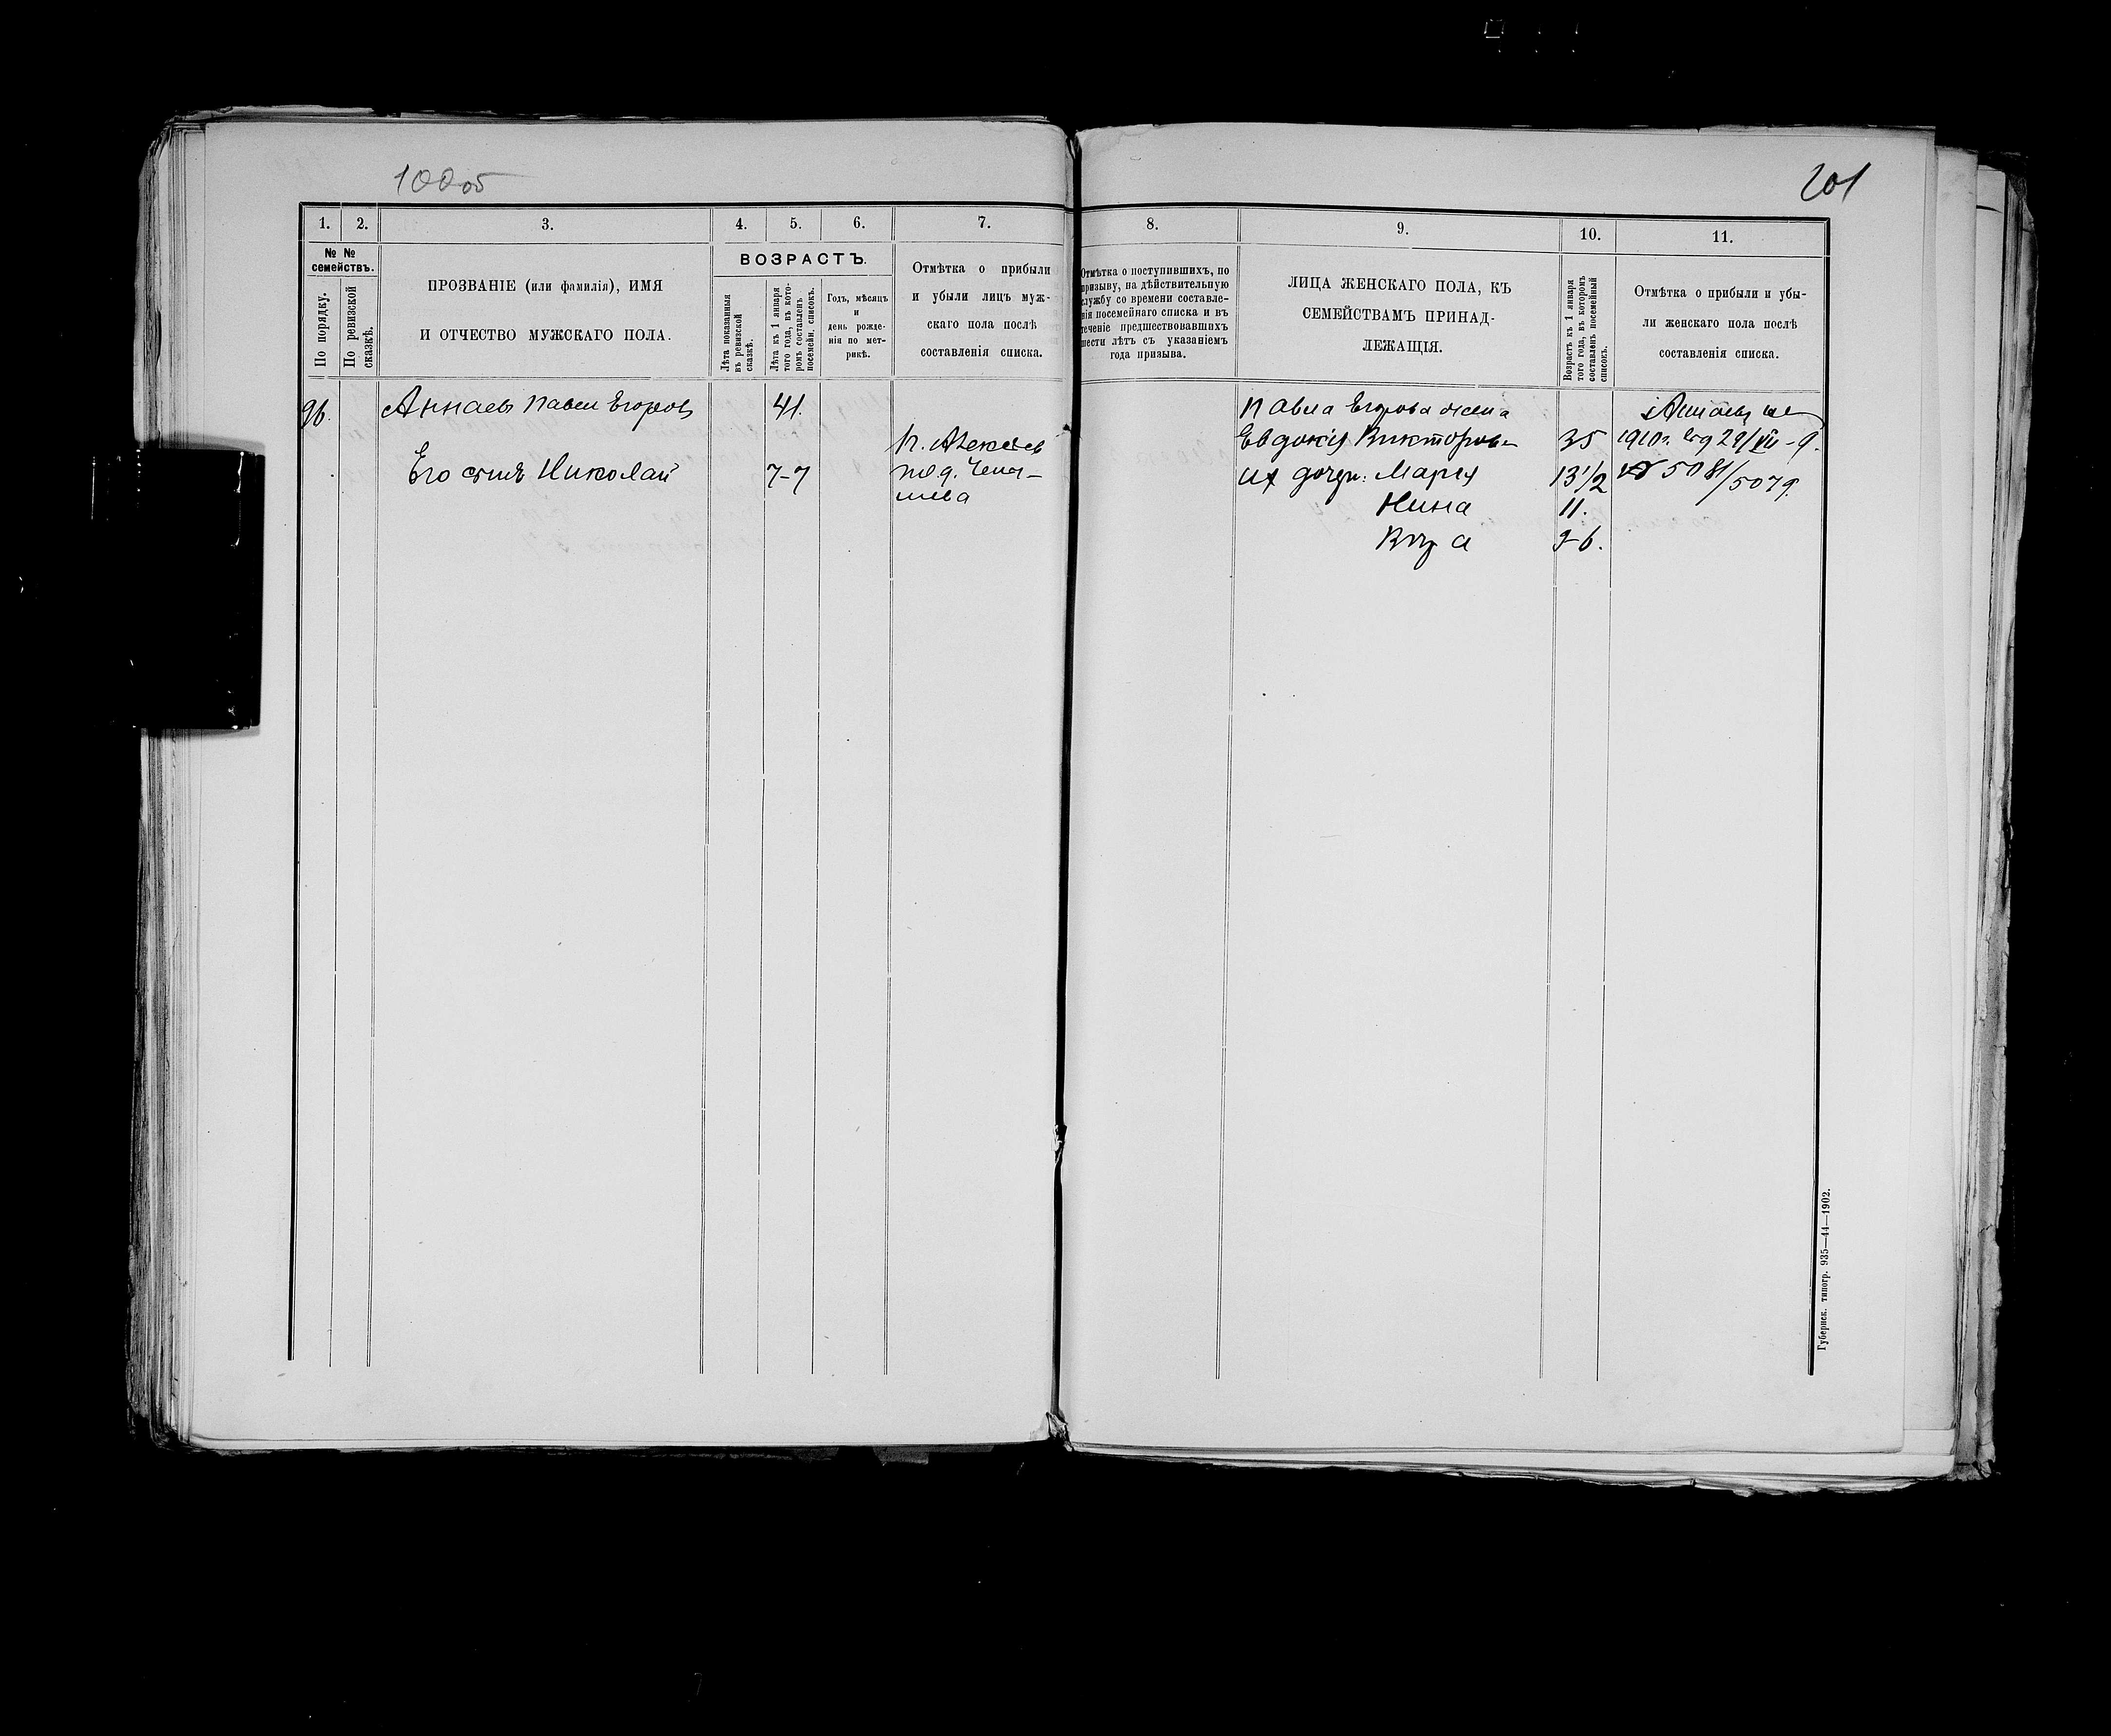 100об
201
1. 2. 3. 4. 5. 6. 7.
№ №
семействъ.
По порядку.
По ревизской
сказкѣ.
ПРОЗВАНІЕ (или фамилія), ИМЯ
И ОТЧЕСТВО МУЖСКАГО ПОЛА.
ВОЗРАСТЪ.
Лѣта показанныя
въ ревизской
сказкѣ.
Лѣта къ 1 января
того года, въ кото-
ромъ составленъ
посемейн. списокъ.
Годъ, мѣсяцъ
и
день рожде-
нія по мет-
рикѣ.
Отмѣтка о прибыли
и убыли лицъ муж-
скаго пола послѣ
составленія списка.
96. Аннаевъ Павелъ Егоровъ 41.
Его сынъ Николай 7-7
8. 9. 10. 11.
Отмѣтка о поступившихъ, по
призыву, на дѣйствительную
службу со времени составле-
нія посемейнаго списка и въ
теченіе предшествовавшихъ
шести лѣтъ съ указаніемъ
года призыва.
ЛИЦА ЖЕНСКАГО ПОЛА, КЪ
СЕМЕЙСТВАМЪ ПРИНАД-
ЛЕЖАЩІЯ.
Возрастъ къ 1 января
того года, въ которомъ
составленъ посемейный
списокъ.
Отмѣтка о прибыли и убы-
ли женскаго пола послѣ
составленія списка.
Павла Егорова жена
Евдокія Викторов- 35 1910г.
их дочери: Марія 13½ № 5081/5079.
Нина 11.
Вѣра 9-6.
Губернск. типогр. 935—44—1902.